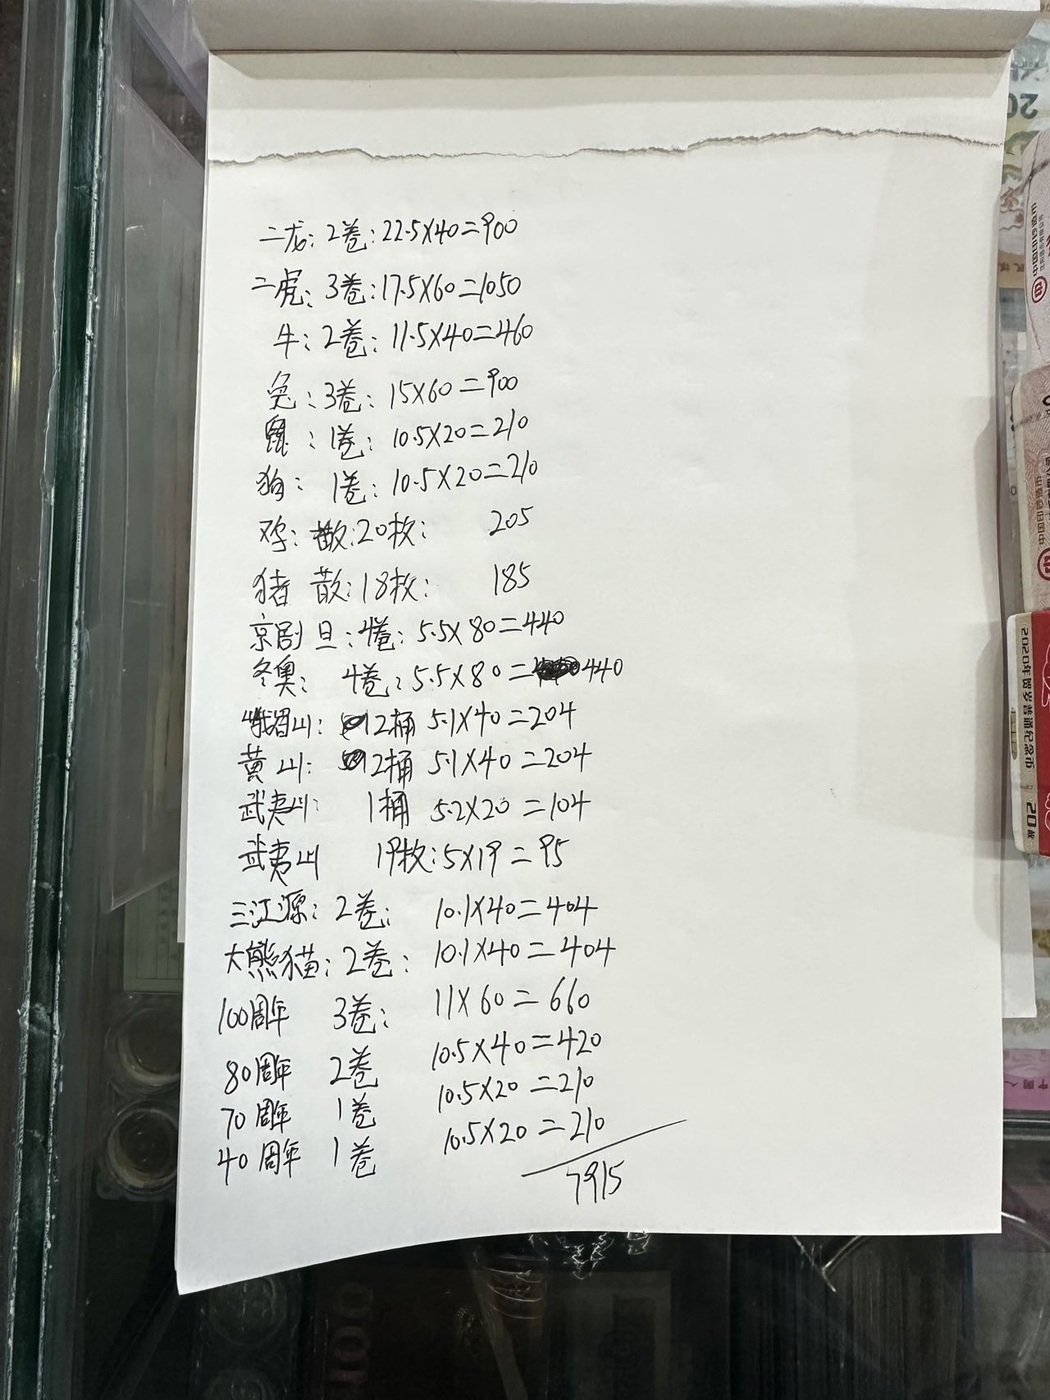 二龙:2卷:22.5X40=900
二虎:3卷:17.5X60=1050
牛:2卷:11.5X40=460
兔:3卷:15X60=900
鼠:1卷:10.5X20=210
狗:1卷:10.5X20=210
鸡:散:20枚: 205
猪 散:18枚: 185
京剧旦:4卷:5.5X80=440
冬奥:4卷:5.5X80=440
峨眉山:2桶 5.1X40=204
黄山:2桶 5.1X40=204
武夷山:1桶 5.2X20=104
武夷山 19枚:5X19=95
三江源:2卷:10.1X40=404
大熊猫:2卷:10.1X40=404
100周年 3卷:11X60=660
80周年 2卷 10.5X40=420
70周年 1卷 10.5X20=210
40周年 1卷 10.5X20=210
7915
2020年贺岁普通纪念币
20枚